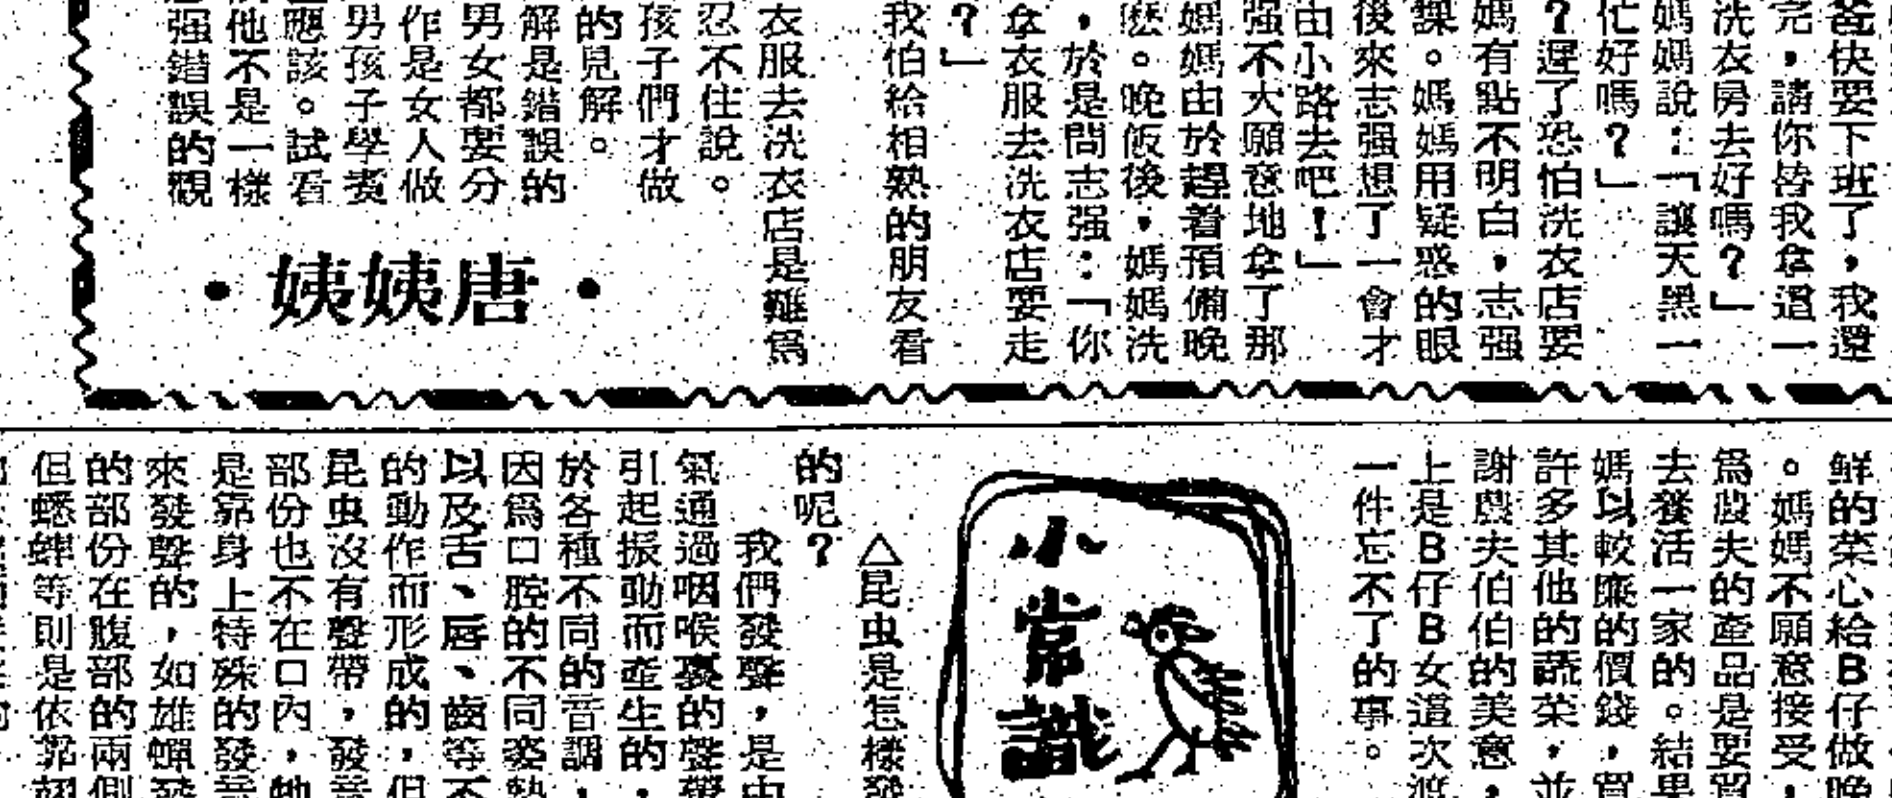 爸快要下班了，我還
完，請你替我拿這一
洗衣房去好嗎？」
媽媽說：「讓天黑一
忙好嗎？」
？遲了恐怕洗衣店要
媽有點不明白，志强
課。媽媽用疑惑的眼
後來志强想了一會才
由小路去吧！」
强不大願意地拿了那
媽媽由於趕着預備晚
麽。晚飯後，媽媽洗
，於是問志强：「你
拿衣服去洗衣店要走
？」
我怕給相熟的朋友看
衣服去洗衣店是難爲
忍不住說。
孩子們才做
的見解。
解是錯誤的
男女都要分
作是女人做
男孩子學煑
應該。試看
他不是一樣
强錯誤的觀
・唐姨姨・
鮮的菜心給B仔做晚
。媽媽不願意接受，
爲農夫的產品是要買
去養活一家的。結果
媽以較廉的價錢，買
許多其他的蔬菜，並
謝農夫伯伯的美意，
上是B仔B女這次渡
一件忘不了的事。
小常識
△昆虫是怎樣發
的呢？
我們發聲，是由
氣通過咽喉裏的聲帶
引起振動而產生的，
於各種不同的音調，
因爲口腔的不同姿勢
以及舌、唇、齒等不
的動作而形成的，但
昆虫沒有聲帶，發音
部份也不在口內，牠
是靠身上特殊的發音
來發聲的，如雄蟬發
的部份在腹部的兩側
但蟋蟀等則是依靠翅